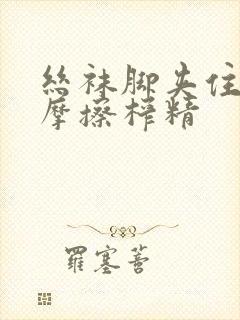 丝袜脚夹住
摩擦榨精
罗塞菩